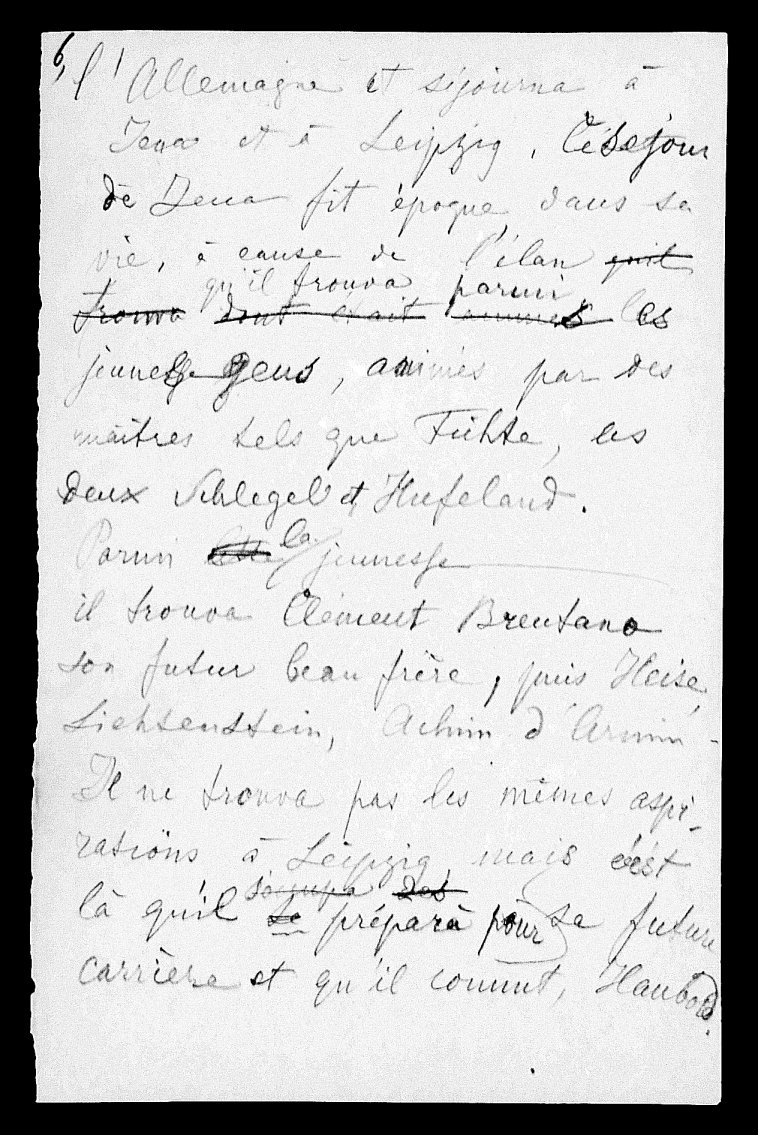 6,
l'Allemagne et séjourna à
Jena et à Leipzig, Ce séjour
de Jena fit époque dans sa
vie, à cause de l'élan qu'il
qu'il trouva parmi
trouva dont était animés les
jeunesse gens, animés par des
maîtres tels que Fichte, les
deux Schlegel et Hufeland.
la
Parmi cette jeunesse
il trouva Clément Brentano
son futur beau frère, puis Heise,
Lichtenstein, Achim d'Arnim -
Il ne trouva pas les mêmes aspi-
rations à Leipzig mais c'est
s'occupa des
là qu'il se prépara pour sa future
carrière et qu'il connut, Haubold.